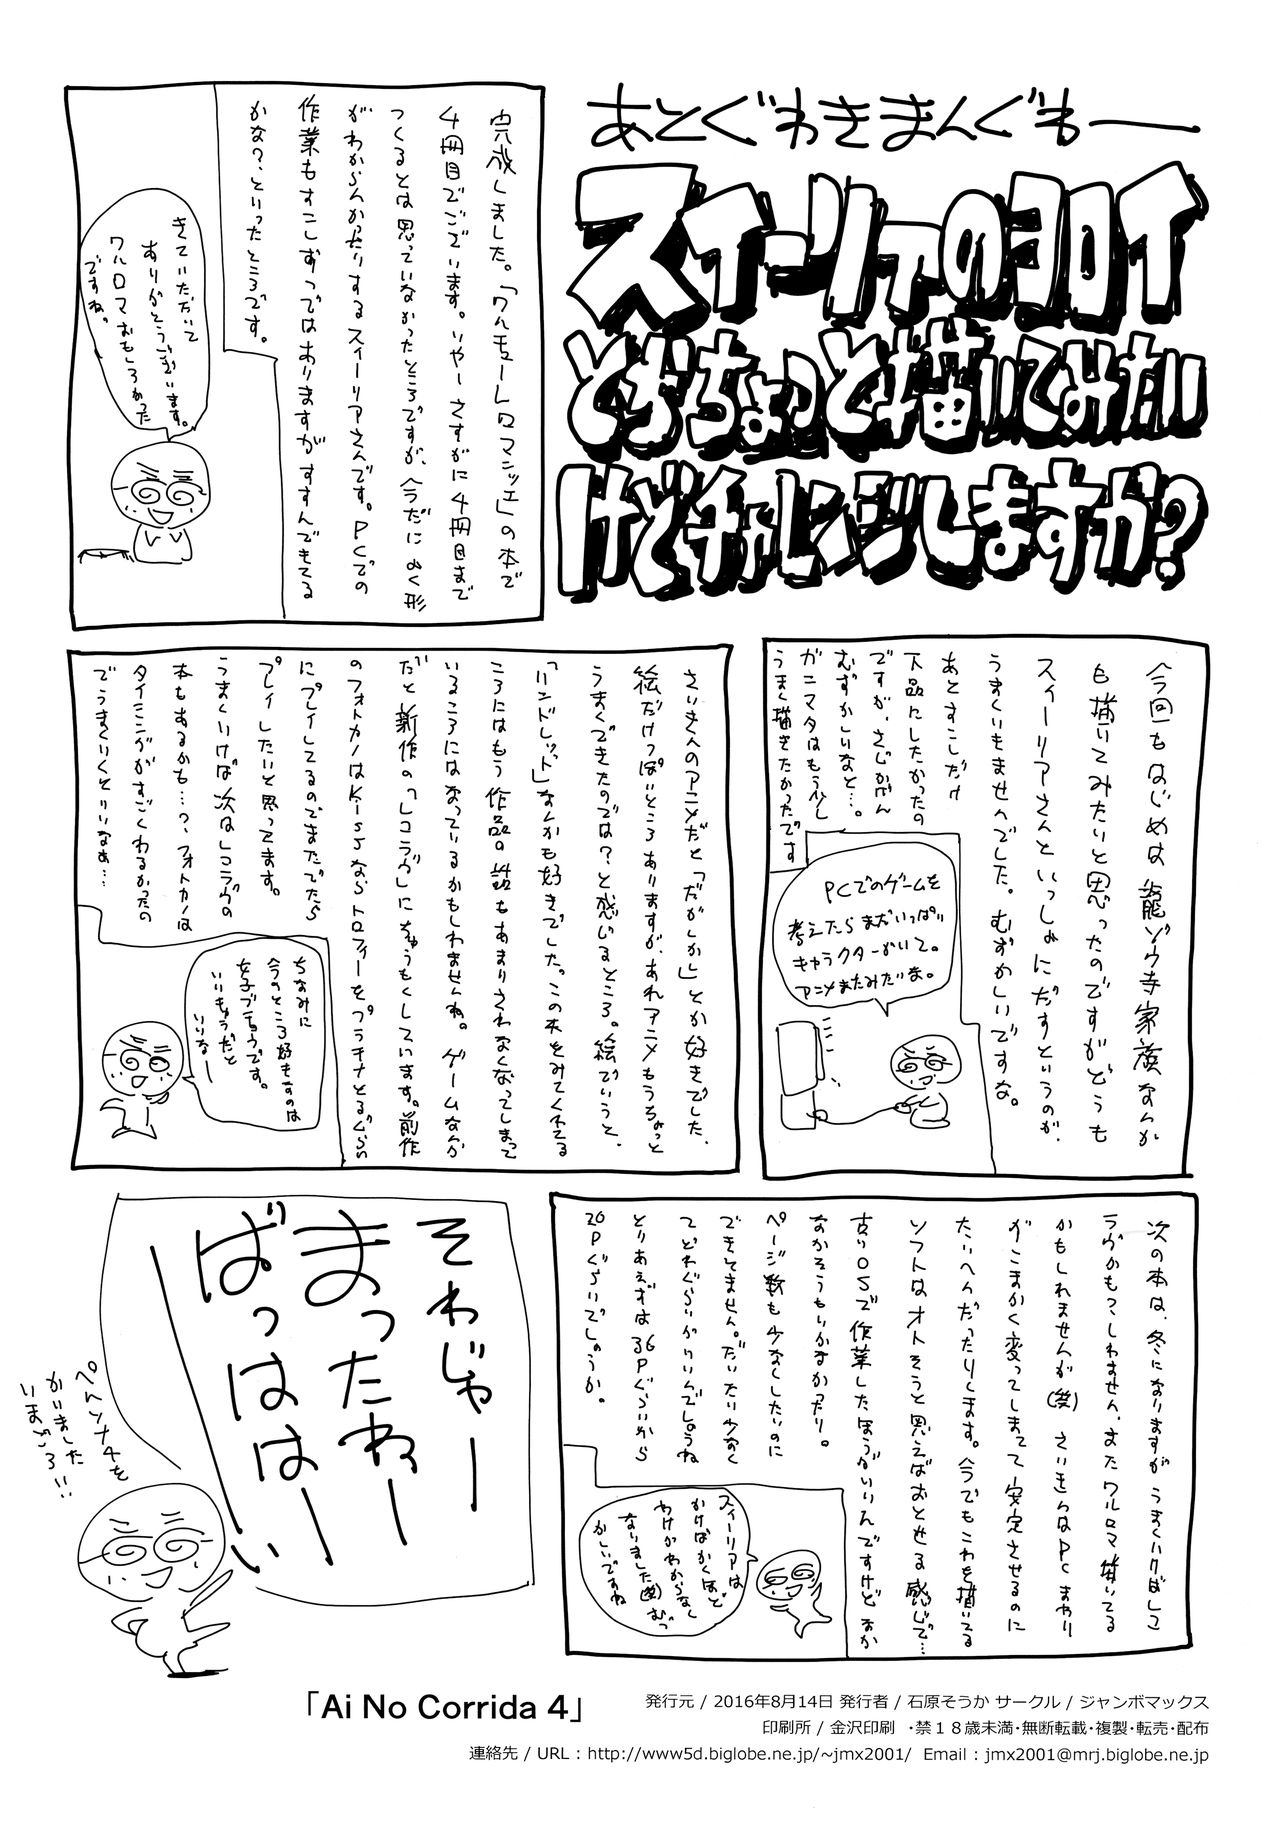 あとぐわきまんぐもー
スイーリアのヨロイ
とかちょっと描いてみたい
けどチャレンジしますか?
完成しました。「ワルキューレロマンツェ」の本で
4冊目でございます。いやーさすがに4冊目まで
つくるとは思っていなかったところですが、今だによく形
がわからんかったりするスイーリアさんです。PCでの
作業もすこしずつではありますがすすんでもてる
かな?、といったところです。
きていただいて
ありがとうございます。
ワルロマおもしろかった
ですね。
今回もはじめは龍ゾウ寺家族なんか
も描いてみたいと思ったのですがどうも
スイーリアさんといっしょにだすというのが、
うまくいきませんでした。むずかしいですな。
あとすこしだけ
下品にしたかったの
ですが、さじかげん
むずかしいなと…。
ガニマタはもう少し
うまく描きたかったです
PCでのゲームを
考えたらまだいっぱい
キャラクターがいて。
アニメまたみたいま。
さいきんのアニメだと「だがしかし」とか好きでした、
絵だけっぽいところありますが、あれアニメもうちょっと
うまくできたのでは?と感じるところ。絵でいうと、
「ハンドレッド」なんかも好きでした。この本をみてくれてる
ころにはもう作品の話もあまりされなくなってしまって
いるころにはなっているかもしれませんね。ゲームなんか
だと新作の「レコラヴ」にちゅうもくしています。前作
のフォトカノはKissならトロフィーをプラチナとるぐらい
にプレイしてるのでまたでたら
プレイしたいと思ってます。
うまくいけば次はレコラヴの
本もあるかも…?、フォトカノは
タイミングがすごくわるかったの
でうまくいくといいなぁ…
ちなみに
今のところ好きなのは
女子ブチョウです。
いいきょうだと
いいなー
次の本は、冬になりますがうまくいけばレコ
ラヴかもっしれません、またワルロマ描いてる
かもしれませんが(笑)さいきんはPCまわり
がこまかく変ってしまてて安定させるのに
たいへんだったりします。今でもこれを描いてる
ソフトはオトそうと思えばおとせる感じで…
古いOSで作業したほうがいいんですけどなか
なかそうもいかなかったり。
ページ数も少なくしたいのに
できてません。だいたい少なく
てどれぐらいがいいんでしょうね
とりあえずは36Pぐらいから
20Pぐらいでしょうか。
スイーリアは
かけばかくほど
わけがわからなく
なりました(笑)むっ
かしいですね
それじゃー
まったねー
ばっははーい
ペルソナ4を
かいました
いまごろ!!
「Ai No Corrida 4」
発行元 / 2016年8月14日 発行者 / 石原そうか サークル / ジャンボマックス
印刷所 / 金沢印刷 ・禁18歳未満・無断転載・複製・転売・配布
連絡先 / URL : http://www5d.biglobe.ne.jp/~jmx2001/ Email : jmx2001@mrj.biglobe.ne.jp